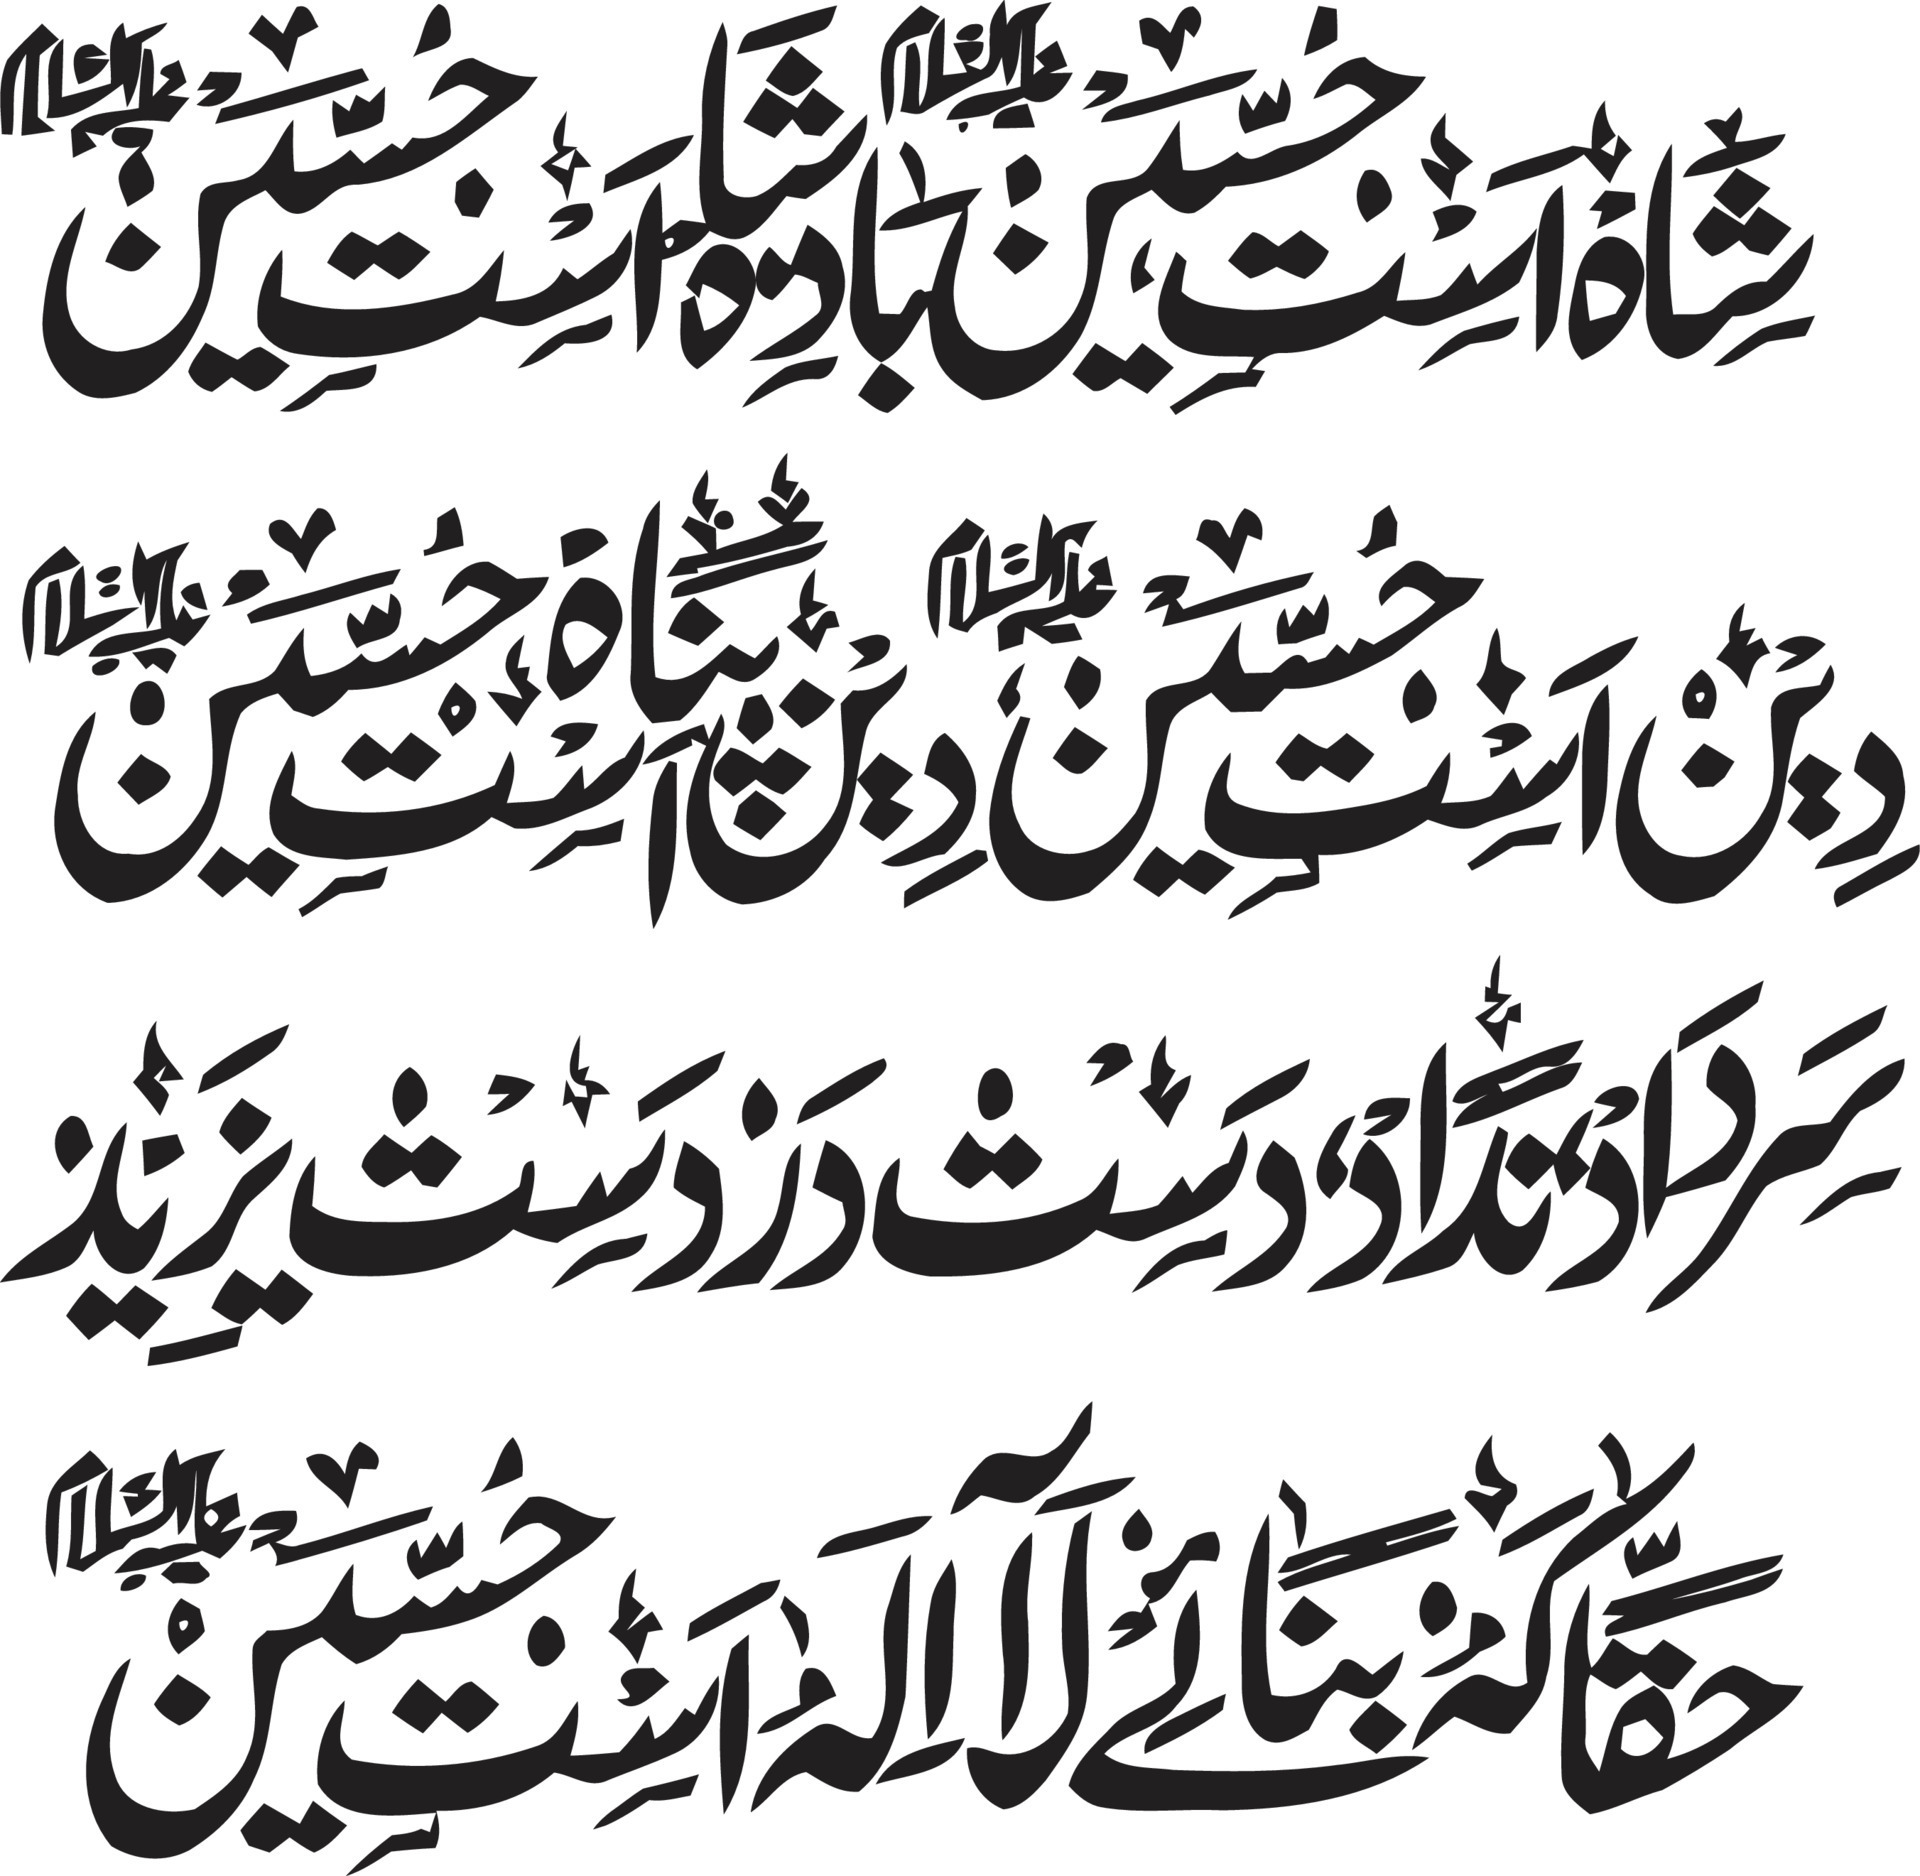 شاہ است حسین علیہ السلام بادشاہ است حسین علیہ السلام
دین است حسین علیہ السلام دین پناہ است حسین علیہ السلام
سر داد نداد دست در دست یزید
حقا کہ بنائے لا الہ است حسین علیہ السلام